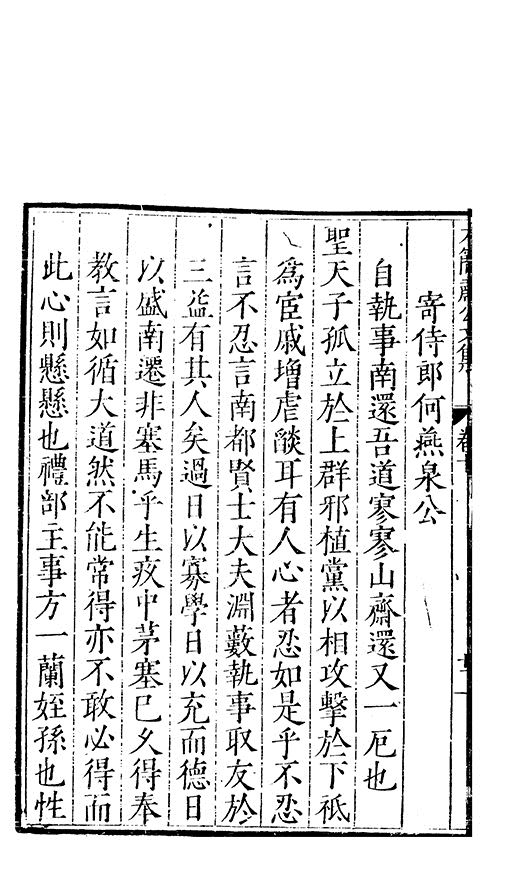 寄侍郎何燕泉公
自執事南還吾道寥寥山齋還又一厄也
聖天子孤立於上群邪植黨以相攻擊於下祗
為宦戚增虐燄耳有人心者忍如是乎不忍
言不忍言南都賢士大夫淵藪執事取友於
三益有其人矣過日以寡學日以充而德日
以盛南遷非塞馬乎生疚中茅塞已久得奉
教言如循大道然不能常得亦不敢必得而
此心則懸懸也禮部主事方一蘭姪孫也性